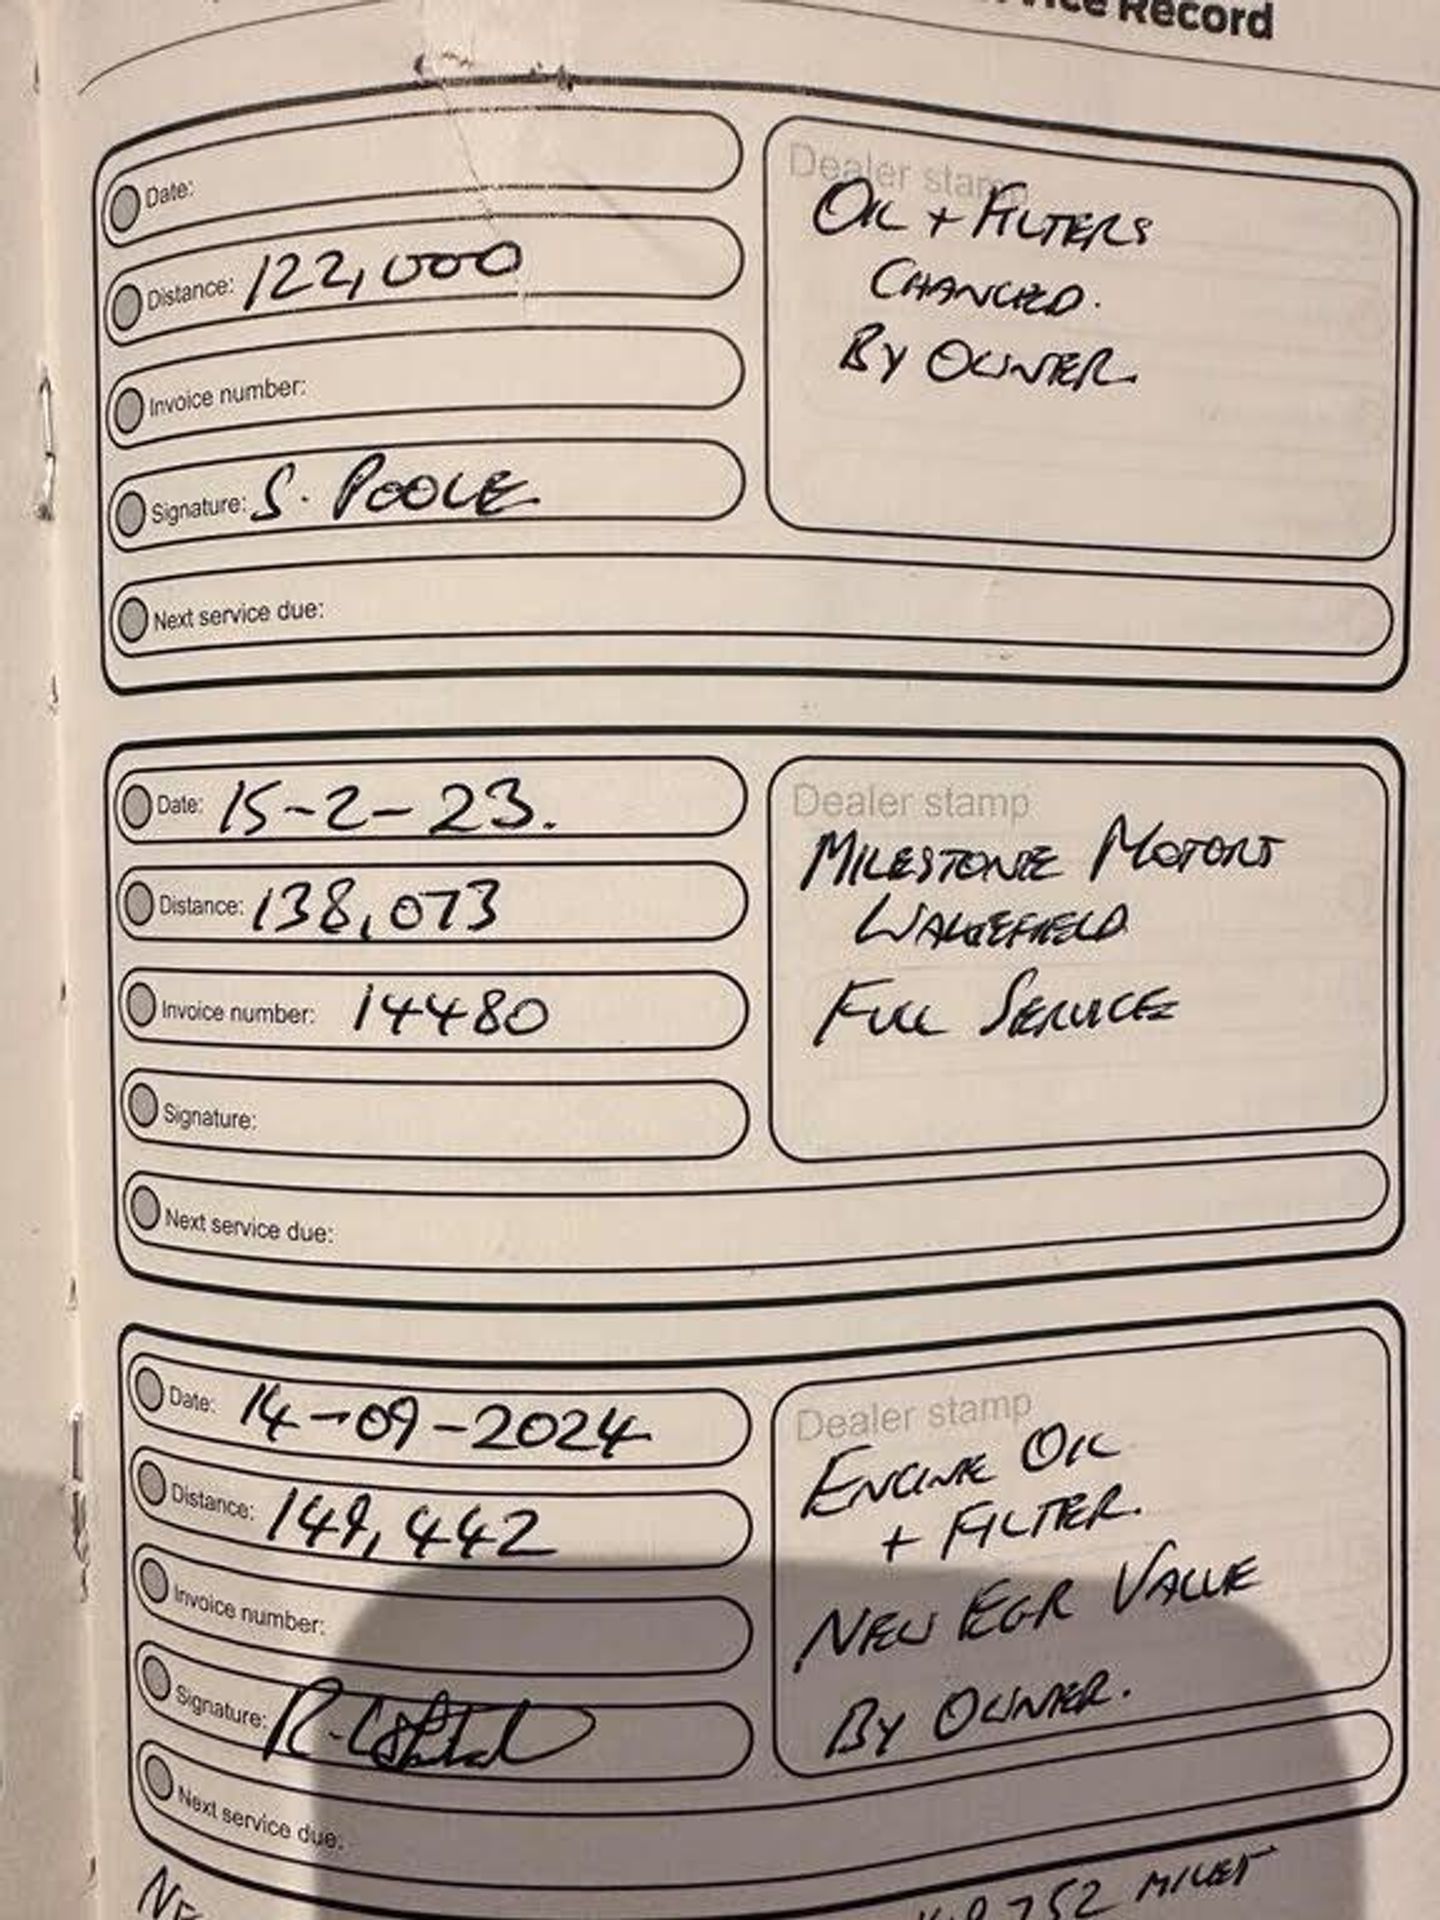 Record
Date:
Distance: 122,000
Invoice number:
Signature: S. POOLE
Next service due:
Dealer stamp
OIL + FILTERS
CHANGED.
BY OWNER.
Date: 15-2-23.
Distance: 138,073
Invoice number: 14480
Signature:
Next service due:
Dealer stamp
MILESTONE MOTORS
WAKEFIELD
FULL SERVICE
Date: 14-09-2024
Distance: 149,442
Invoice number:
Signature: R.
Next service due:
Dealer stamp
ENGINE OIL
+ FILTER.
NEW EGR VALVE
BY OWNER.
MILES